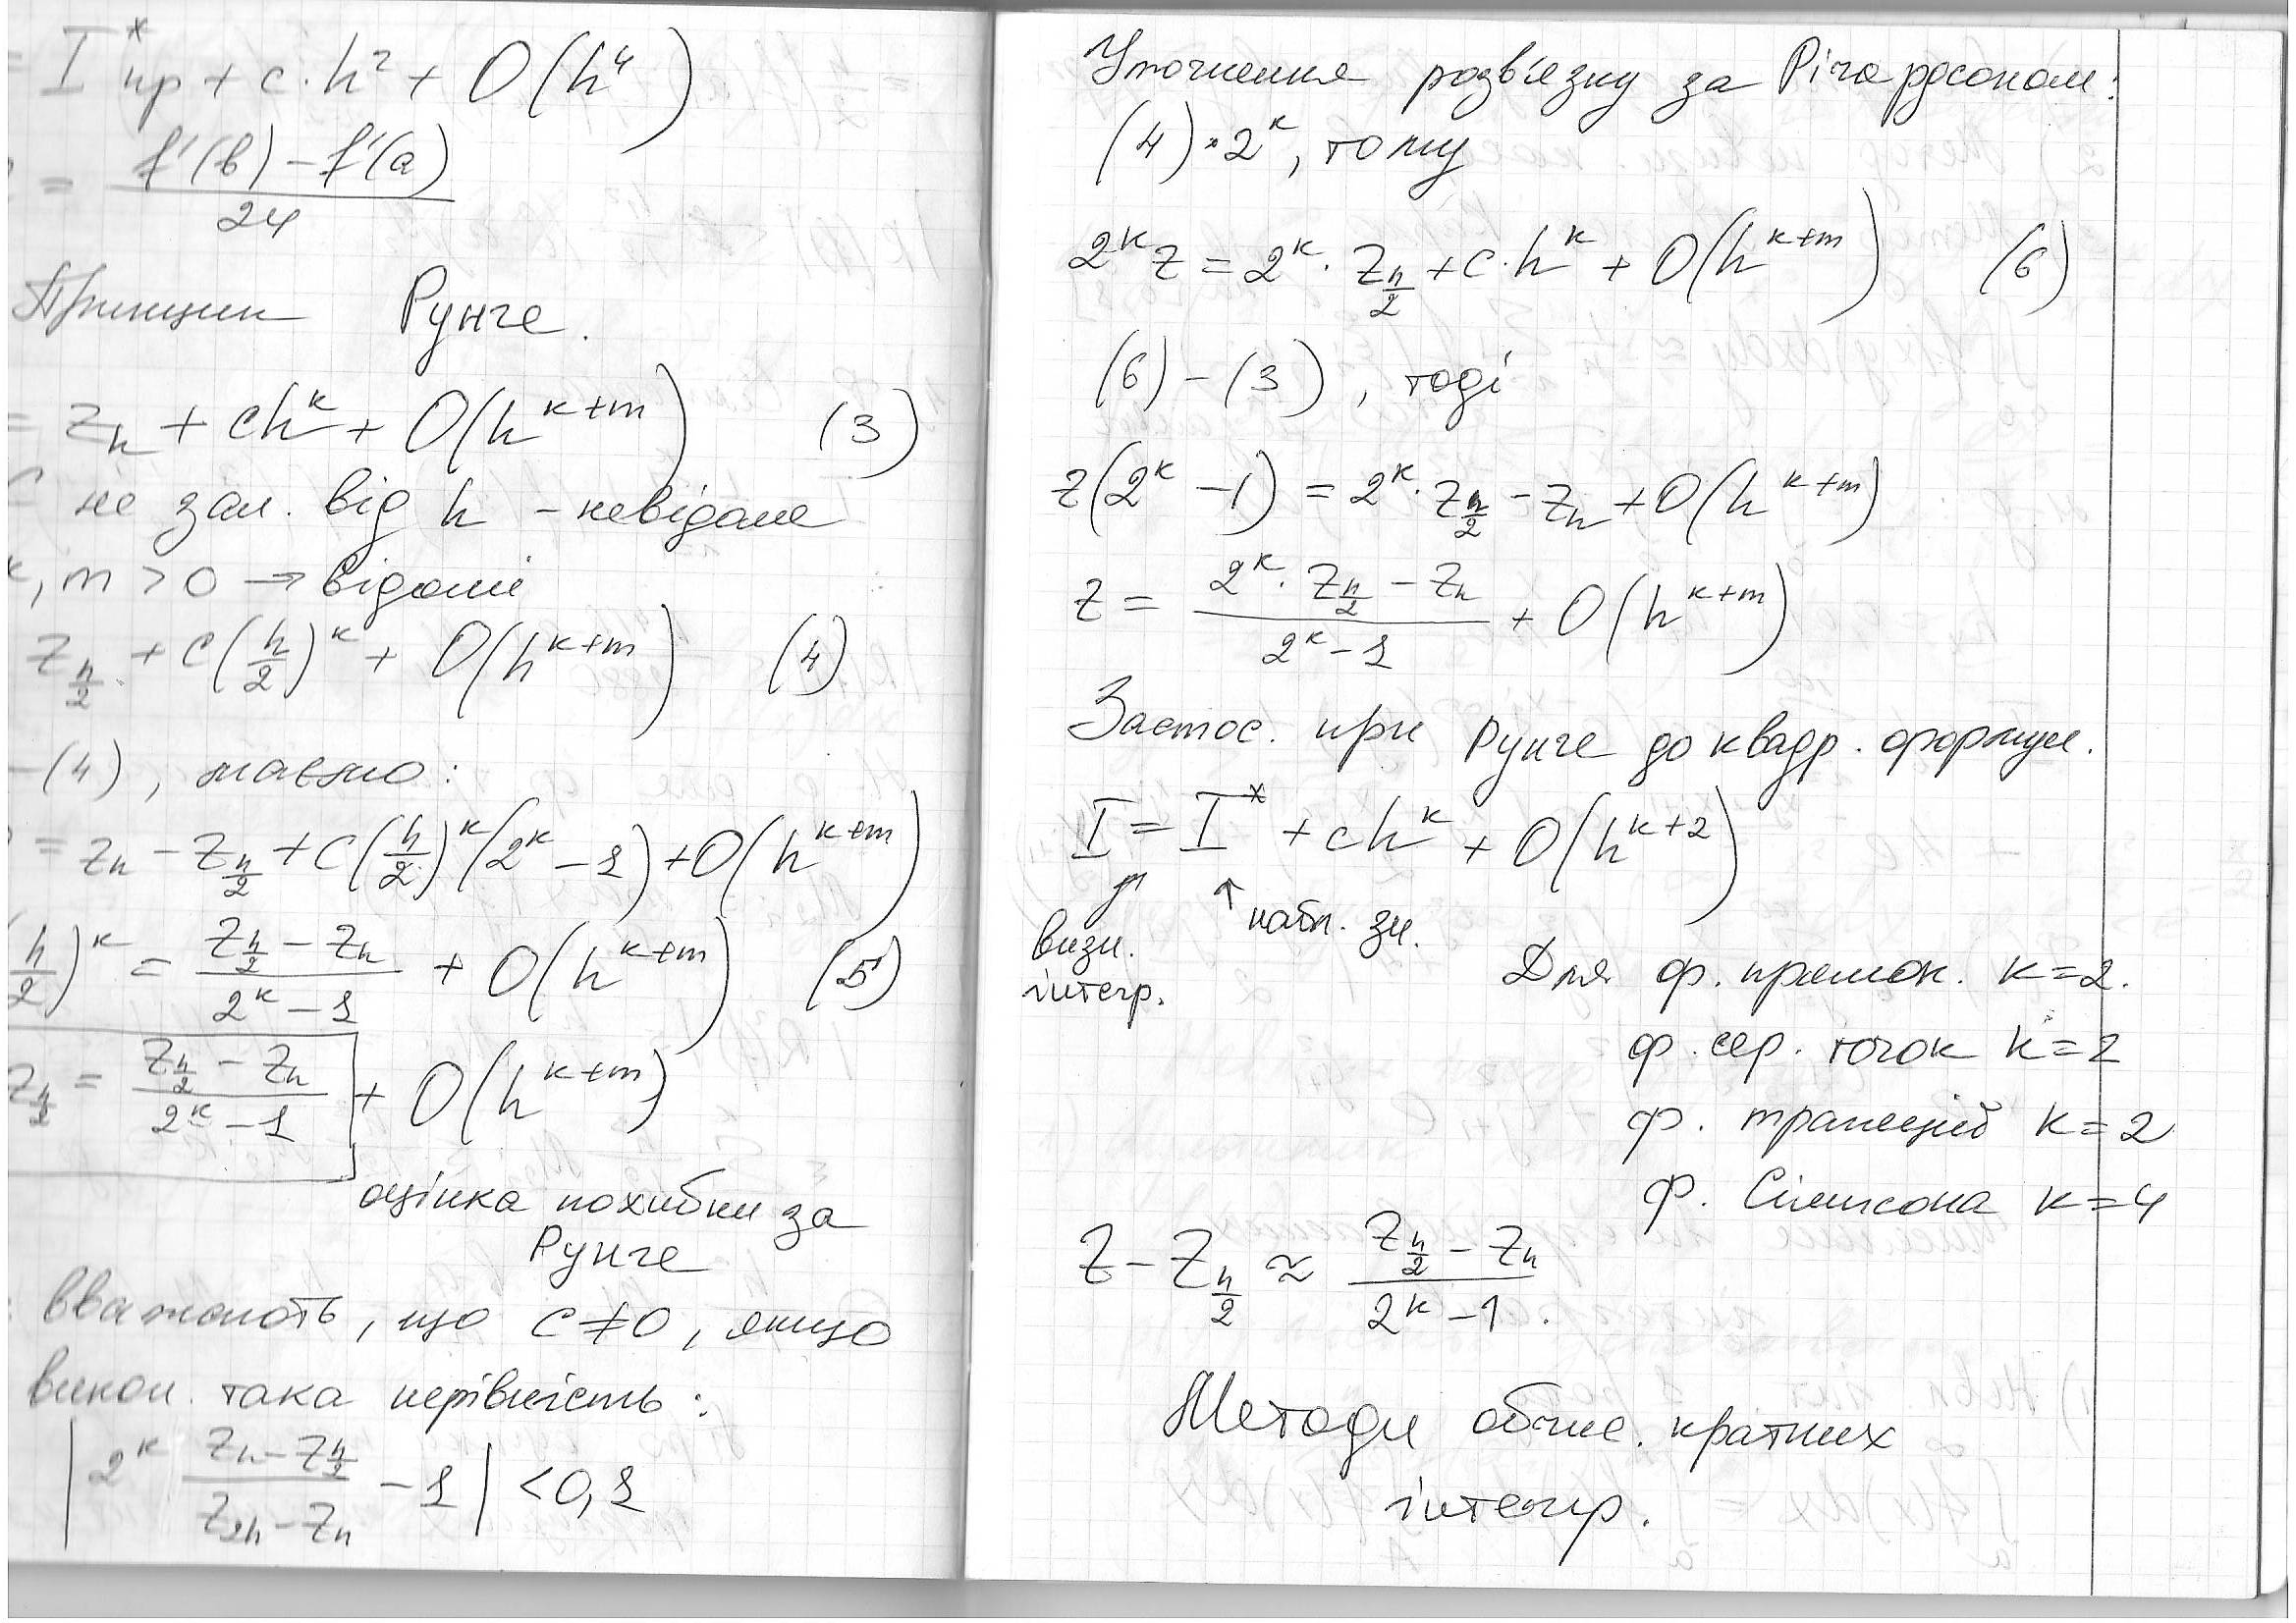 = I*пр + c·h² + O(h⁴)
= (f'(b) − f'(a)) / 24
Принцип Рунге.
= z_h + ch^k + O(h^(k+m)) (3)
C не зал. від h – невідоме
k, m > 0 → відомі
z_(h/2) + c(h/2)^k + O(h^(k+m)) (4)
−(4), маємо:
= z_h − z_(h/2) + c(h/2)^k (2^k − 1) + O(h^(k+m))
(h/2)^k = (z_(h/2) − z_h) / (2^k − 1) + O(h^(k+m)) (5)
z_(h/2) = (z_(h/2) − z_h) / (2^k − 1) + O(h^(k+m))
оцінка похибки за
Рунге
вважають, що c ≠ 0, якщо
викон. така нерівність:
|2^k (z_h − z_(h/2)) / (z_(2h) − z_h) − 1| < 0,1
Уточнення розв'язку за Річардсоном:
(4)·2^k, тому
2^k z = 2^k · z_(h/2) + c·h^k + O(h^(k+m)) (6)
(6) − (3), тоді
z(2^k − 1) = 2^k · z_(h/2) − z_h + O(h^(k+m))
z = (2^k · z_(h/2) − z_h) / (2^k − 1) + O(h^(k+m))
Застос. при Рунге до квадр. формул.
I = I* + ch^k + O(h^(k+2))
↑ набл. зн.
визн.
інтегр.
Для ф. прямок. k=2.
ф. сер. точок k=2
ф. трапецій k=2
ф. Сімпсона k=4
z − z_(h/2) ≈ (z_(h/2) − z_h) / (2^k − 1).
Методи обчис. кратних
інтегр.